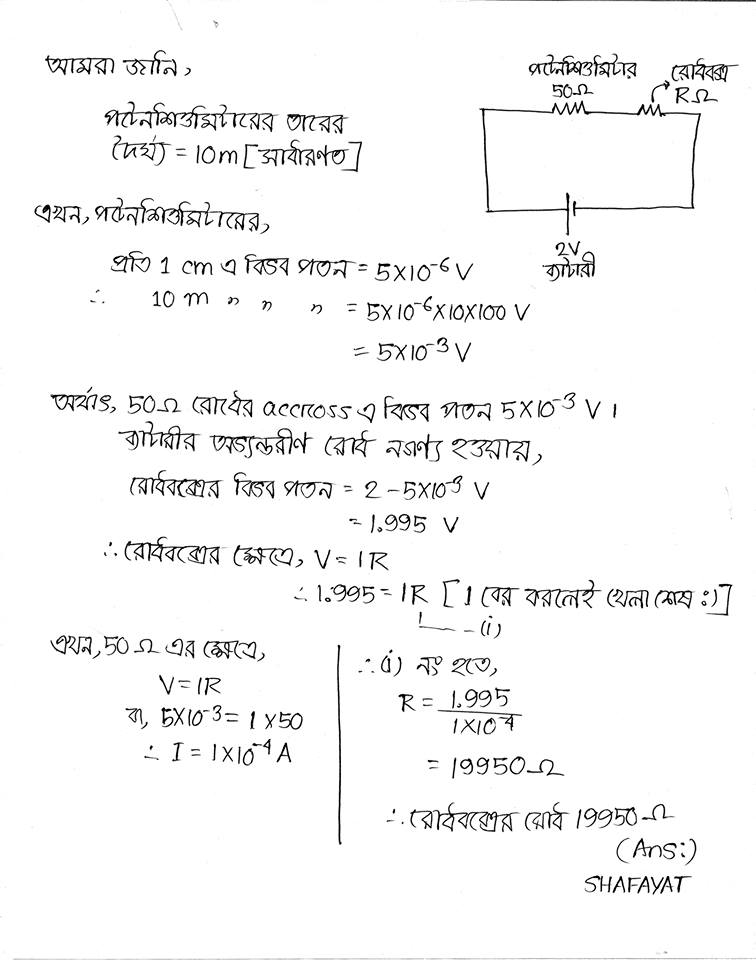 আমরা জানি,
পটেনশিওমিটারের তারের
দৈর্ঘ্য = 10m [সাধারণত]
পটেনশিওমিটার
50Ω
রোধবক্স
RΩ
2V
ব্যাটারী
এখন, পটেনশিওমিটারের,
প্রতি 1 cm এ বিভব পতন = 5×10⁻⁶ V
∴ 10 m " " " = 5×10⁻⁶×10×100 V
= 5×10⁻³ V
অর্থাৎ, 50Ω রোধের accross এ বিভব পতন 5×10⁻³ V।
ব্যাটারীর অভ্যন্তরীণ রোধ নগণ্য হওয়ায়,
রোধবক্সের বিভব পতন = 2 – 5×10⁻³ V
= 1.995 V
∴ রোধবক্সের ক্ষেত্রে, V = IR
∴ 1.995 = IR [I বের করলেই খেলা শেষ :)]
– (i)
এখন, 50 Ω এর ক্ষেত্রে,
V = IR
বা, 5×10⁻³ = I × 50
∴ I = 1×10⁻⁴ A
∴ (i) নং হতে,
R = 1.995
1×10⁻⁴
= 19950 Ω
∴ রোধবক্সের রোধ 19950 Ω
(Ans:)
SHAFAYAT